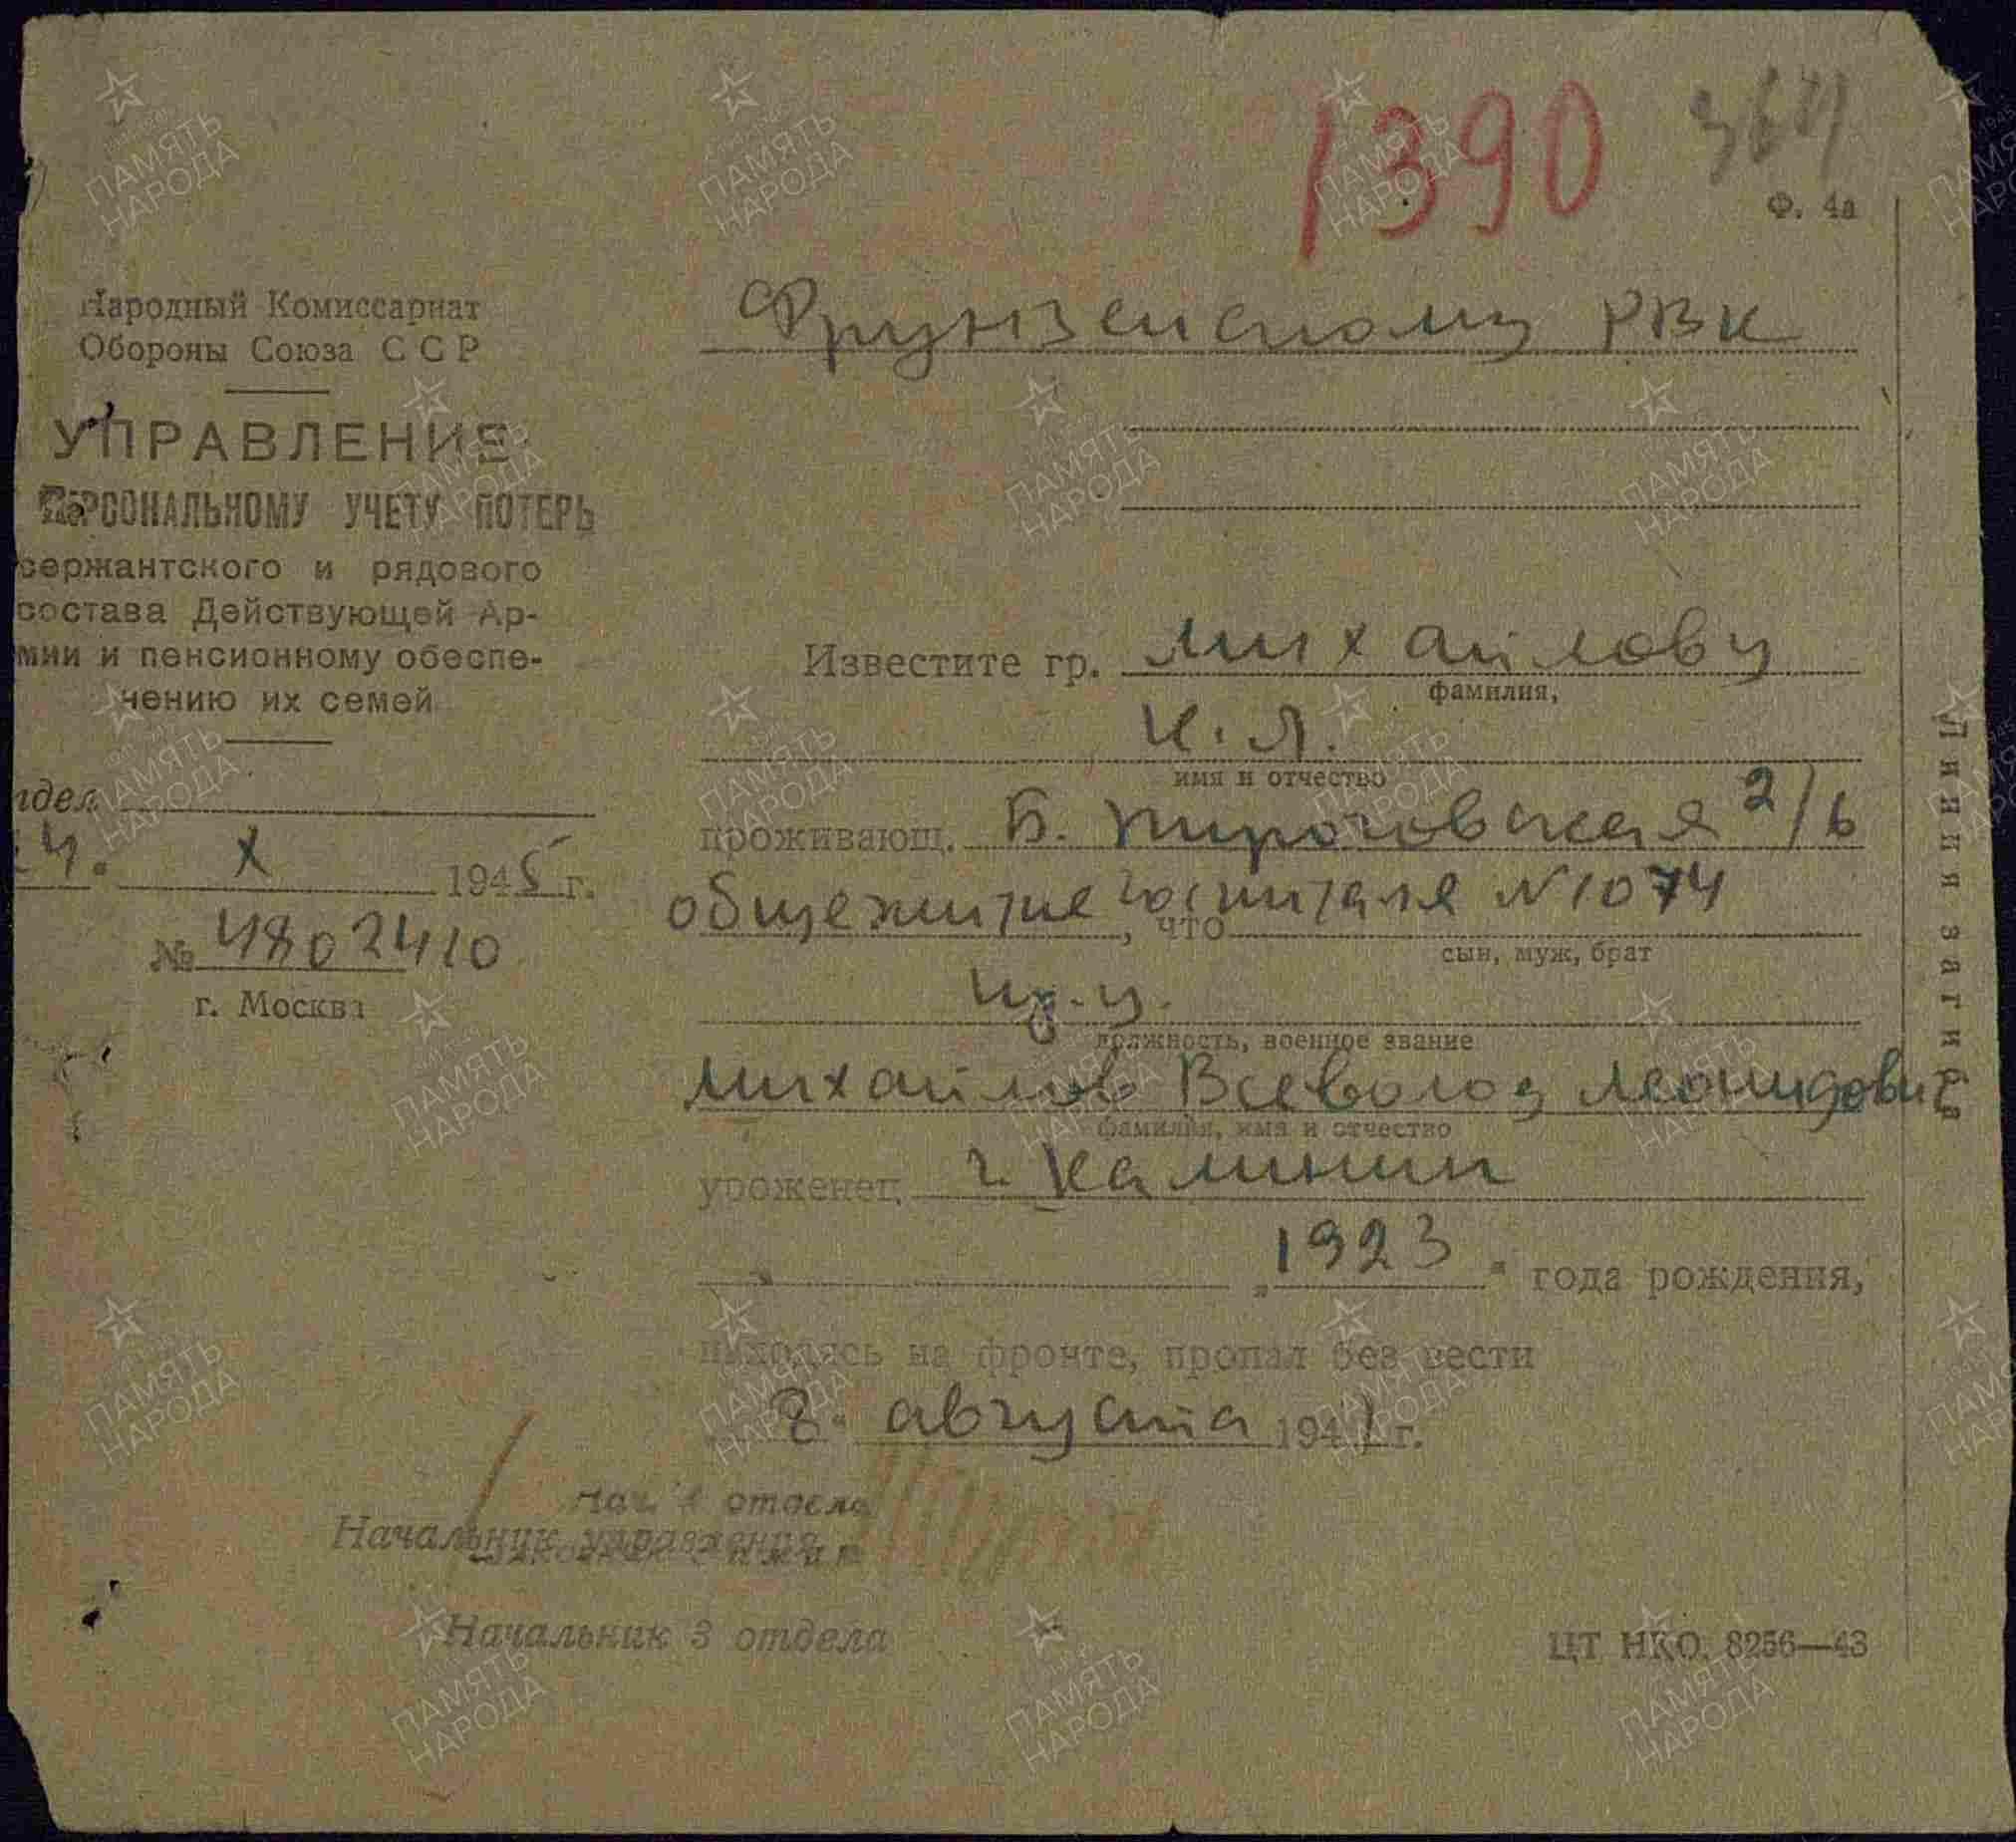 1390
Ф. 4а
Народный Комиссариат
Обороны Союза ССР
УПРАВЛЕНИЕ
ПЕРСОНАЛЬНОМУ УЧЕТУ ПОТЕРЬ
сержантского и рядового
состава Действующей Ар-
мии и пенсионному обеспе-
чению их семей
тдел
4. X 1945 г.
№ 4802410
г. Москва
Фрунзенскому РВК
Известите гр. Михайлову
фамилия,
К. Я.
имя и отчество
проживающ. Б. Пироговская 2/6
общежитие госпиталя N 1074
, что
сын, муж, брат
должность, военное звание
Михайлов Всеволод Леонидович
фамилия, имя и отчество
уроженец г. Калинин
„1923" года рождения,
находясь на фронте, пропал без вести
8. августа 1941 г.
Нач. 1 отдела
Начальник управления
Начальник 3 отдела
ЦТ НКО. 8256—43
Линия загиба
ПАМЯТЬ НАРОДА